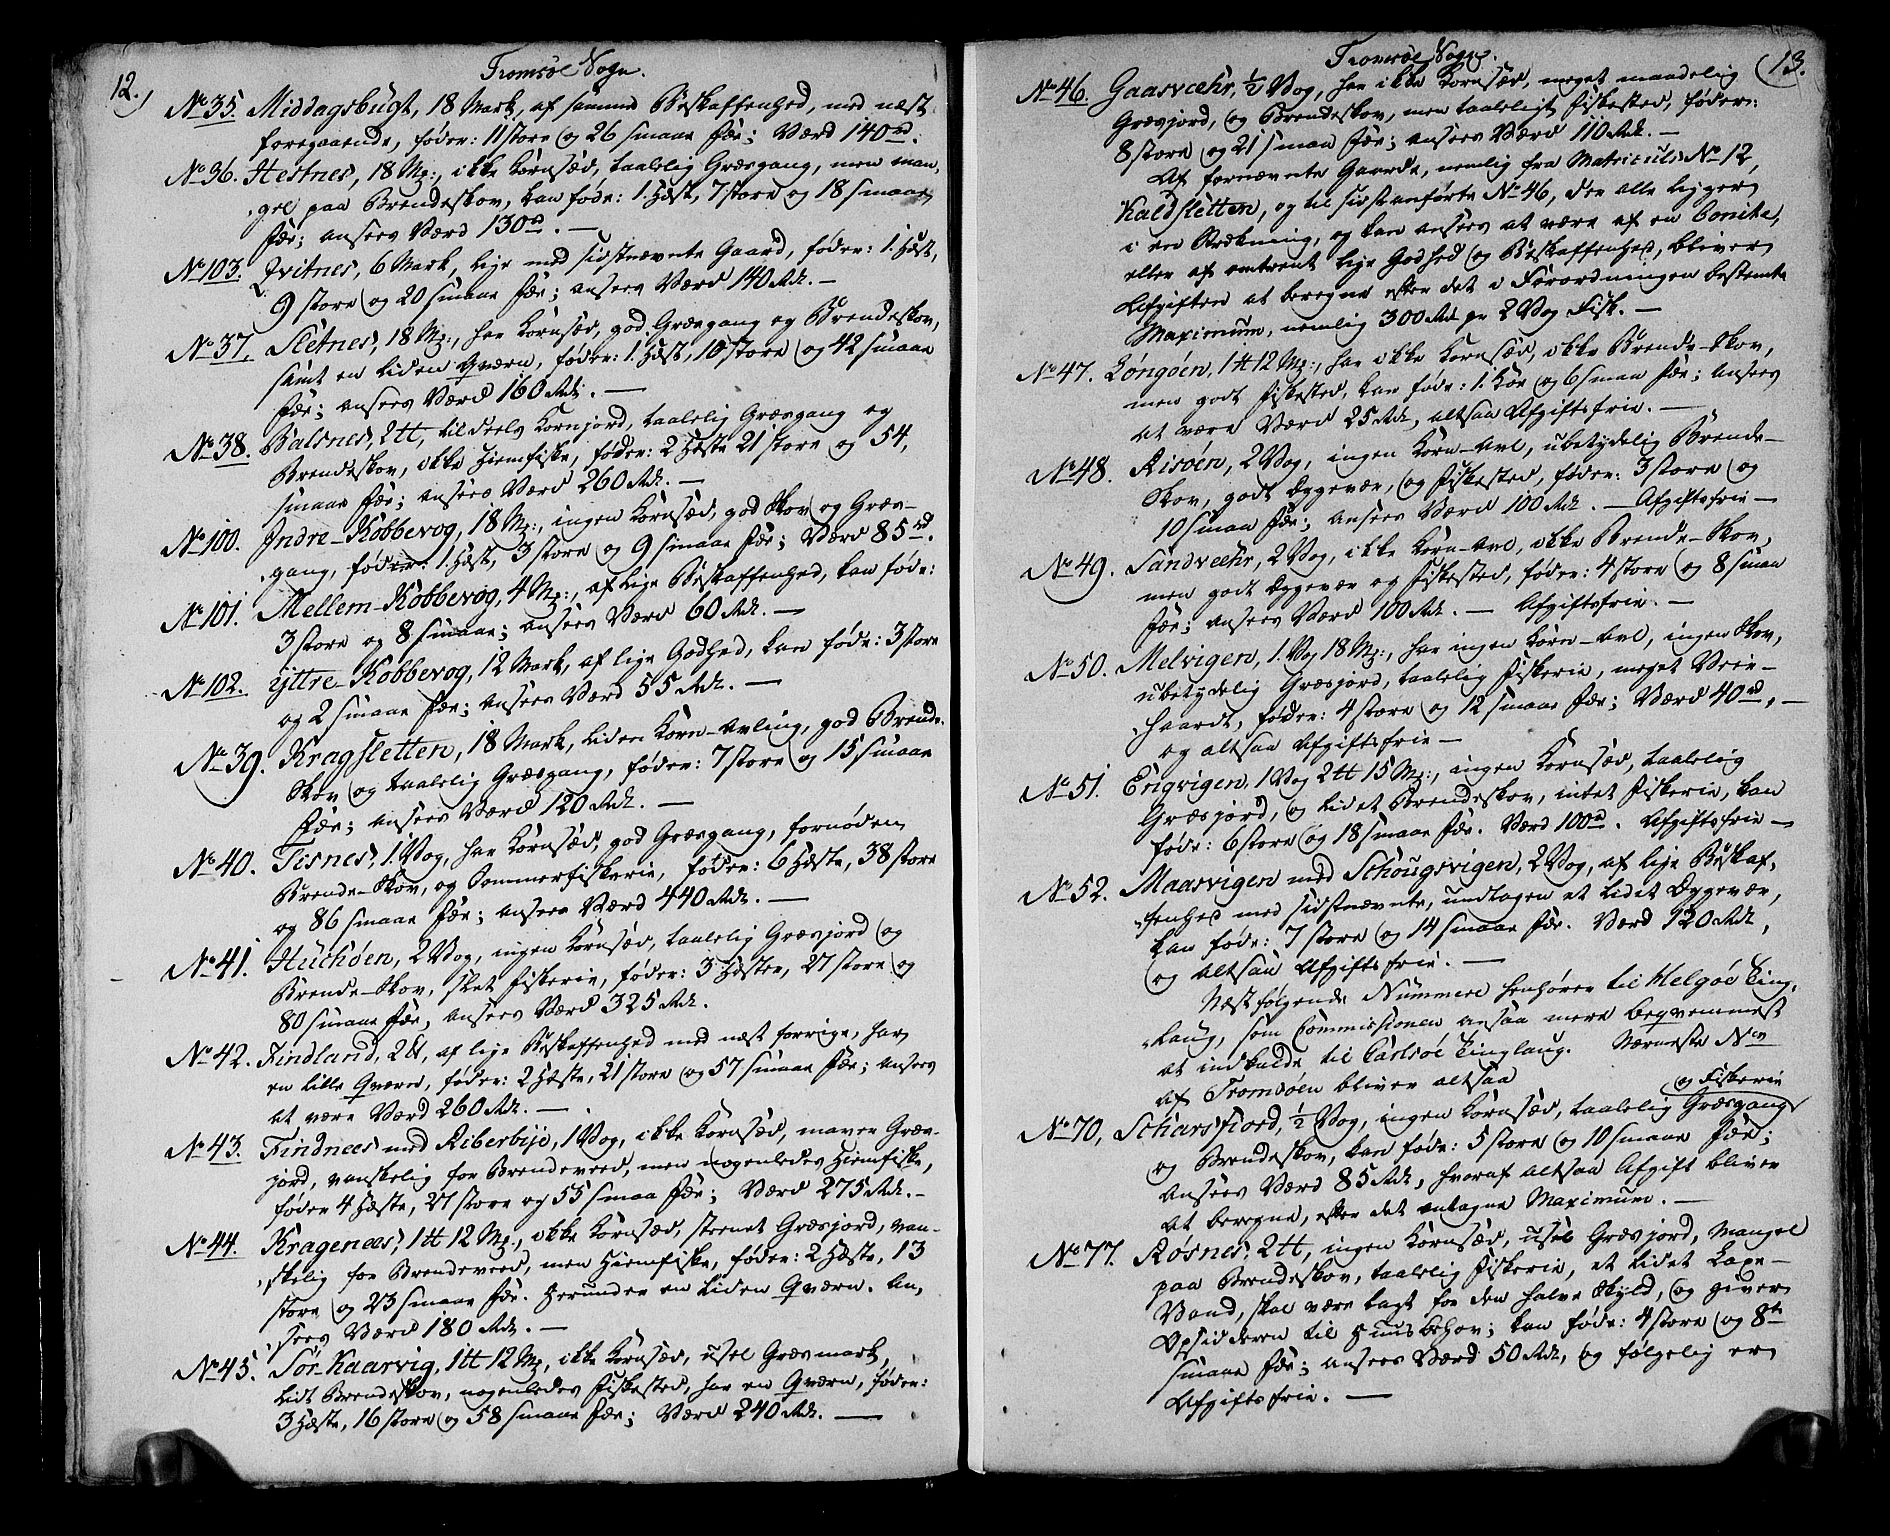 12.)
Tromsöe Sogn.
No 35. Middagsbugt, 18 Mark, af samme Beskaffenhed, med næst
foregaaende, föder: 11 store og 26 smaae Fæe; Værd 140 rd.
No 36. Hestnes, 18 Mg:, ikke Kornsæd, taalelig Græsgang, men man,
gel paa Brendeskov, kan föde: 1. Hæst, 7 store og 18 smaae
Fæe; ansees Værd 130 rd. —
No 103. Hvitnes, 6 Mark, lige med sidstnævnte Gaard, föder: 1. Hæst,
9 store og 20 smaae Fæe; ansees Værd 140 Rdr. —
No 37. Sletnes, 18 Mg:, har Kornsæd, god Græsgang og Brendeskov,
samt en liden Qværn, föder: 1. Hæst, 10 store og 42 smaae
Fæe; ansees Værd 160 Rdr. —
No 38. Balsnes, 2 tt, tildeels Kornjord, taalelig Græsgang og
Brendeskov, ikke Hiemfiske, föder: 2 Hæste 21 store og 54,
smaae Fæe; ansees Værd 260 Rdr. —
No 100. Indre-Kobbevog, 18 Mg:, ingen Kornsæd, god Skov og Græs-
gang, föder: 1. Hæst, 3 store og 9 smaae Fæe; Værd 85 rd.
No 101. Mellem-Kobbevog, 4 Mg:, af lige Beskaffenhed, kan föde:
3 store og 8 smaae; ansees Værd 60 Rdr. —
No 102. Yttre-Kobbevog, 12 Mark, af lige Godhed, kan föde: 3 store
og 2 smaae Fæe; ansees Værd 55 Rdr. —
No 39. Kragsletten, 18 Mark, liden Korn-Avling, god Brende-
Skov og taalelig Græsgang, föder: 7 store og 15 smaae
Fæe; ansees Værd 120 Rdr. —
No 40. Tisnes, 1. Vog, har Kornsæd, god Græsgang, fornöden
Brende-Skov, og Sommerfiskerie, föder: 6 Hæste, 38 store
og 86 smaae Fæe; ansees Værd 440 Rdr. —
No 41. Huchöen, 2 Vog, ingen Kornsæd, taalelig Græsjord og
Brende-Skov, slet Fiskerie, föder: 3 Hæster, 27 store og
80 smaae Fæe, ansees Værd 325 Rdr.
No 42. Findland, 2 tt, af lige Beskaffenhed med næst forrige, har
en lille Qværn, föder: 2 Hæste, 21 store og 57 smaae Fæe; ansees
at være Værd 260 Rdr. —
No 43. Findnees med Riberbye, 1 Vog, ikke Kornsæd, mager Græs-
jord, vanskelig for Brendeveed, men nogenledes Hiemfiske,
föder 4 Hæste, 27 store og 55 smaa Fæe; Værd 275 Rdr. —
No 44. Kragenees, 1 tt 12 Mg:, ikke Kornsæd, steenet Græsjord, van-
skelig for Brendeveed, men Hiemfiske, föder: 2 Hæste, 13
store og 23 smaae Fæe. Herunder en liden Qværn. An,
sees Værd 180 Rdr. —
No 45. Sör-Kaarvig, 1 tt 12 Mg, ikke Kornsæd, ussel Græsmark,
lidt Brendeskov, nogenledes Fiskested, har en Qværn, föder:
3 Hæste, 16 store og 58 smaae Fæe; Værd 240 Rdr. —
Tromsöe Sogn.
(13.
No 46. Gaasværhr, ½ Vog, har ikke Kornsæd, meget maadelig
Græsjord, og Brendeskov, men taaleligt Fiskested, föder:
8 store og 21 smaa Fæe; ansees Værd 110 Rdr. —
Af fornævnte Gaarde, nemlig fra Matriculs No 12,
Kaldsletten, og til sidstanförte No 46, der alle ligger
i en Strækning, og kan ansees at være af en bonite,
eller af omtrent lige Godhed og Beskaffenhed, bliver
Afgiften at beregne efter det i Forordningen bestemte
Maximum, nemlig 300 Rdr pr 2 Vog Fisk. —
No 47. Longöen, 1 tt 12 Mg:, har ikke Kornsæd, ikke Brende-Skov,
men godt Fiskested, kan föde: 1. Koe og 6 smaa Fæe; ansees
at være Værd 25 Rdr, altsaa Afgiftsfrie. —
No 48. Risöen, 2 Vog, ingen Korn-Avl, ubetydelig Brende-
Skov, godt Eggevær, og Fiskested, föder: 3 store og
10 smaa Fæe; ansees Værd 100 Rdr. — Afgiftsfrie —
No 49. Sandværhr, 2 Vog, ikke Korn-Avl, ikke Brende-Skov,
men godt Eggevær og Fiskested, föder: 4 store og 8 smaa
Fæe; ansees Værd 100 Rdr. — Afgiftsfrie. —
No 50. Melvigen, 1. Vog 18 Mg:, har ingen Korn-Avl, ingen Skov,
ubetydelig Græsjord, taalelig Fiskerie, meget Veir-
haardt, föder: 4 store og 12 smaae Fæe; Værd 40 rd, —
og altsaa Afgiftsfrie —
No 51. Engvigen, 1 Vog 2 tt 15 Mg:, ingen Kornsæd, taalelig
Græsjord, og lidet Brendeskov, intet Fiskerie, kan
föde: 6 store og 18 smaae Fæe. Værd 100 rd. Afgiftsfrie —
No 52. Maasvigen med Schougsvigen, 2 Vog, af lige Beskaf,
fenhed med sidstnævnte, undtagen et lidet Eggevær,
kan föde: 7 store og 14 smaae Fæe. Værd 120 Rdr,
og altsaa Afgiftsfrie. —
Næstfölgende Nummere henhörer til Helgöe Ting,
laug, som Commissionen ansaa mere beqvemmest
at indkalde til Carlsöe Tinglaug. Nærneste Nor
af Tromsöen bliver altsaa
og Fiskerie
No 70, Scharsfiord, ½ Vog, ingen Kornsæd, taalelig Græsgang
og Brendeskov, kan föde: 5 store og 10 smaae Fæe;
ansees Værd 85 Rdr, hvoraf altsaa Afgift bliver
at beregne, efter det antagne Maximum. —
No 77. Rösnes, 2 tt, ingen Kornsæd, ussel Græsjord, Mangel
paa Brendeskov, taalelig Fiskerie, et lidet Laxe-
Vand, skal være lagt for den halve Skyld, og giver
Opsidderen til Huusbehov; kan föde: 4 store og 8te
smaae Fæe; ansees Værd 50 Rdr, og fölgelig er
Afgiftsfrie. —